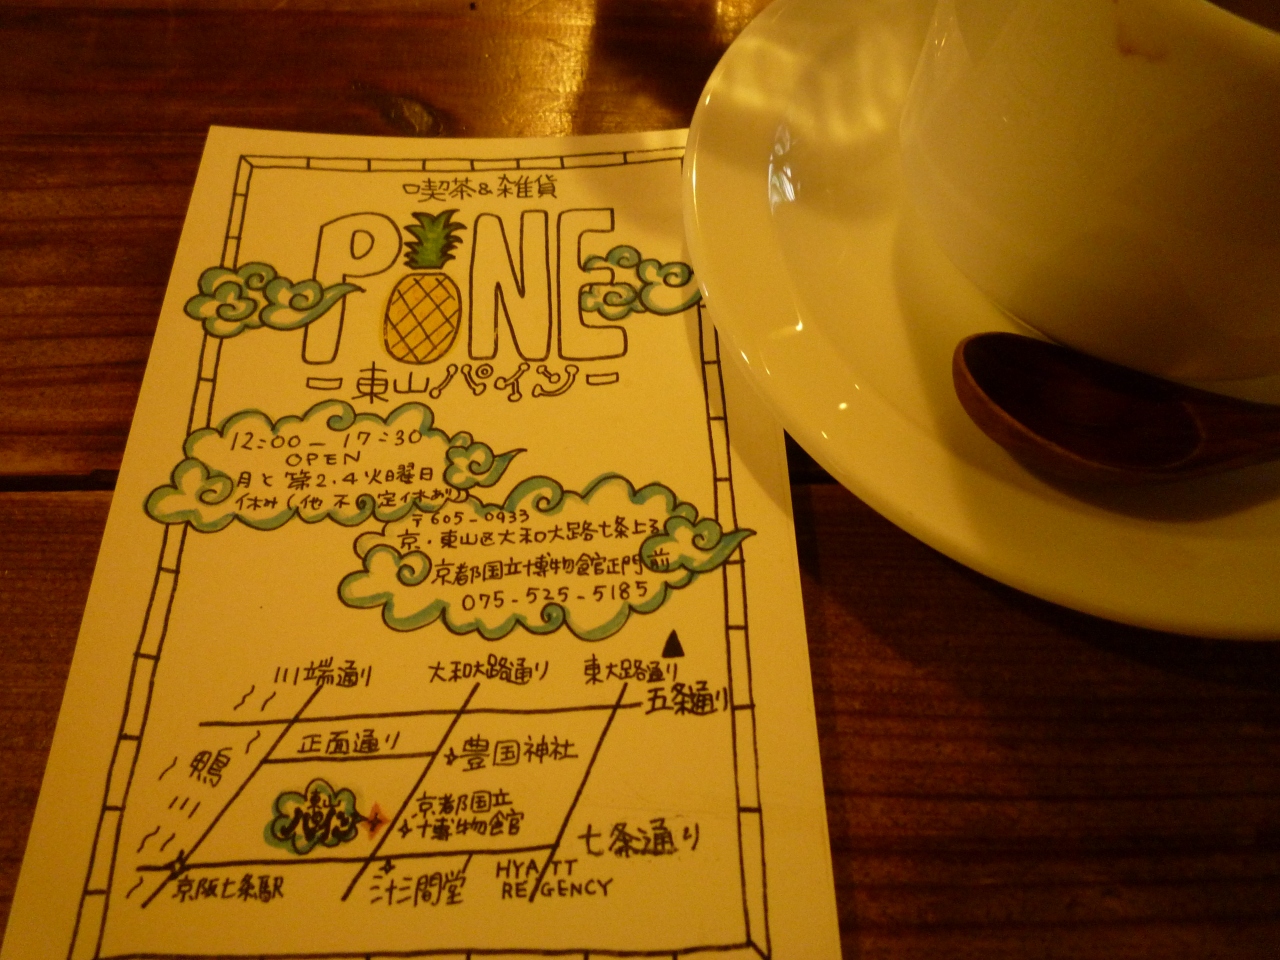 喫茶&雑貨
PINE
－東山パイン－
12:00－17:30
OPEN
月と第2.4火曜日
休み(他不定休あり)
〒605-0933
京・東山区大和大路七条上る
京都国立博物館正門前
075-525-5185
川端通り
大和大路通り
東大路通り
五条通り
正面通り
鴨川
豊国神社
東山パイン
京都国立
博物館
七条通り
京阪七条駅
三十三間堂
HYATT
REGENCY